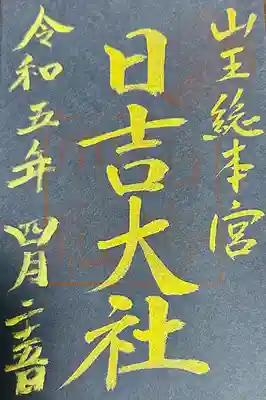 山王総本宮
日吉大社
令和五年 四月二十五日